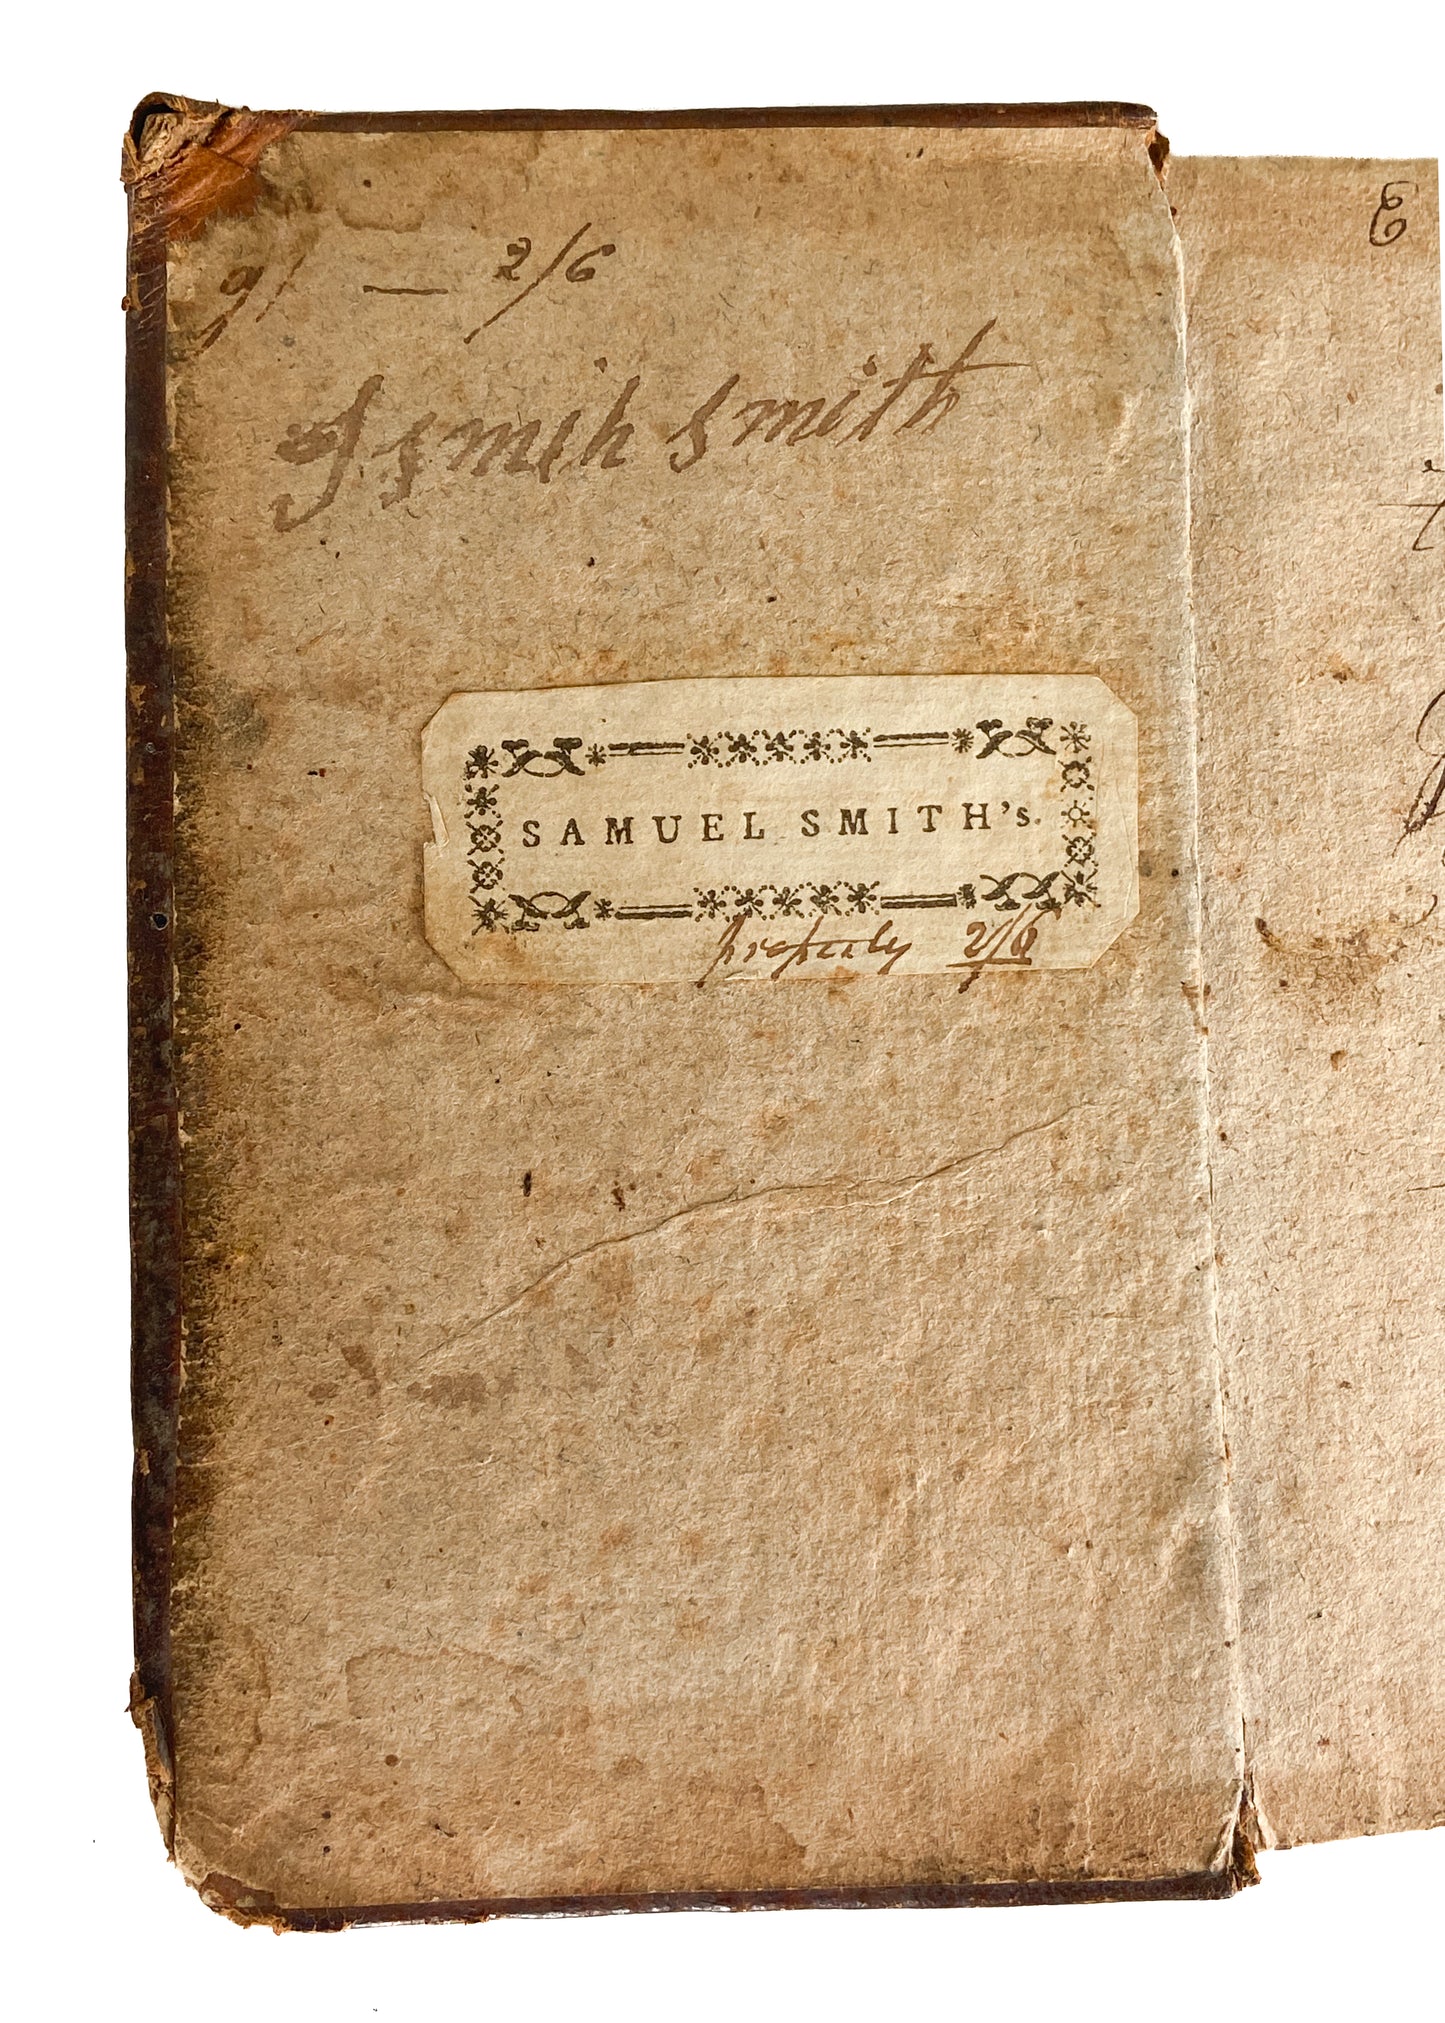 9/ — 2/6
Smith
SAMUEL SMITH's.
property 2/6
E